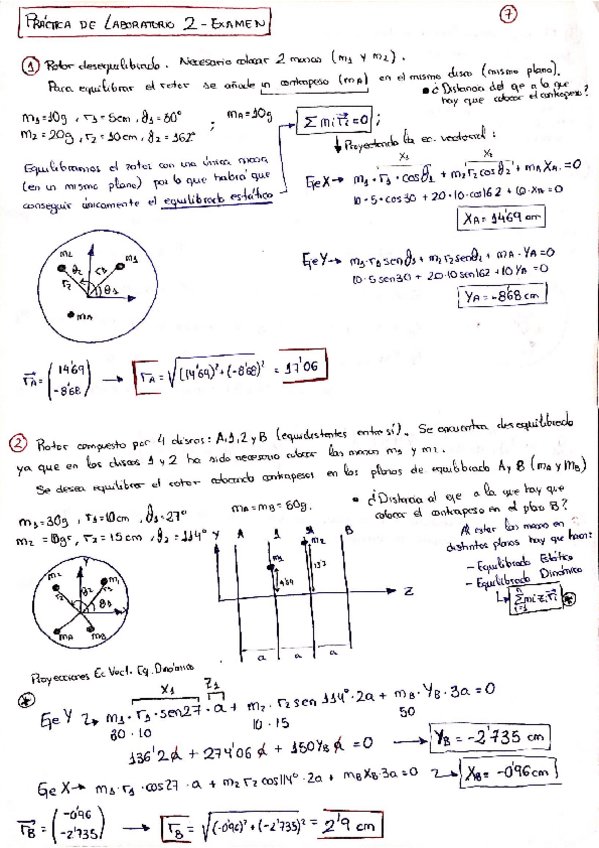 PRÁCTICA DE LABORATORIO 2 - EXAMEN
7
1 Rotor desequilibrado. Necesario colocar 2 masas (m1 y m2).
Para equilibrar el rotor se añade un contrapeso (mA) en el mismo disco (mismo plano).
• ¿Distancia del eje a la que
hay que colocar el contrapeso?
m1=10g, r1=5cm, θ1=60°
m2=20g, r2=10cm, θ2=162°
; mA=10g
∑mi ri=0 ;
Proyectando la ec. vectorial:
Equilibraremos el rotor con una única masa
(en un mismo plano) por lo que habrá que
conseguir únicamente el equilibrado estático
x1 x2
Eje X → m1·r1·cosθ1 + m2r2cosθ2 + mA XA = 0
10·5·cos30 + 20·10·cos162 + 10·XA=0
XA=14'69 cm
Eje Y → m1·r1senθ1 + m2r2senθ2 + mA·YA=0
10·5sen30 + 20·10sen162 + 10YA=0
YA=-8'68 cm
m2 m1
θ2 r1
r2 θ1
mA
rA = (14'69 -8'68) → rA = √(14'69)²+(-8'68)² = 17'06
2 Rotor compuesto por 4 discos: A,1,2 y B (equidistantes entre sí). Se encuentra desequilibrado
ya que en los discos 1 y 2 ha sido necesario colocar las masas m1 y m2.
Se desea equilibrar el rotor colocando contrapesos en los planos de equilibrado A y B (mA y mB)
• ¿Distancia al eje a la que hay que
colocar el contrapeso en el plano B?
m1=30g, r1=10cm, θ1=27°
r2=15cm, θ2=114°
mA=mB=50g.
Al estar las masas en
distintos planos hay que hacer:
- Equilibrado Estático
- Equilibrado Dinámico
∑ mi zi ri *
Y A 1 B
m1 m2
Z
a a a
Y
m2 m1
r2 θ2 r1
θ1 X
mA mB
Proyecciones Ec Vect. Eq. Dinámico
x1 z1
* Eje Y → m1·r1·sen27·a + m2·r2sen114°·2a + mB·YB·3a=0
30·10 10·15 50
136'2a + 274'06a + 150YBa = 0 → YB=-2'735 cm
Eje X → m1·r1·cos27·a + m2r2cos114°·2a + mBXB·3a=0 → XB=-0'96cm
rB = (-0'96 -2'735) → rB = √(-0'96)²+(-2'735)² = 2'9 cm